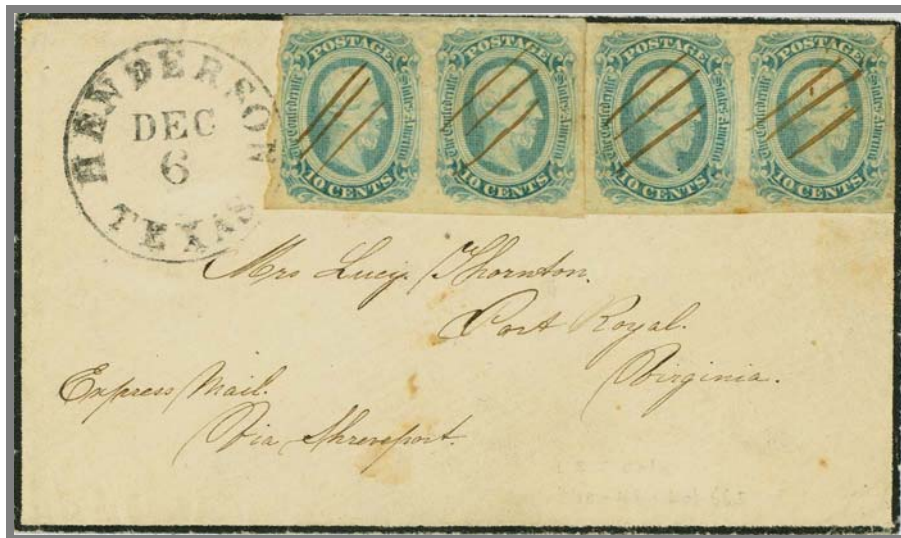 HENDERSON
DEC
6
TEXAS
POSTAGE
The Confederate States of America
10 CENTS
POSTAGE
The Confederate States of America
10 CENTS
POSTAGE
The Confederate States of America
10 CENTS
POSTAGE
The Confederate States of America
10 CENTS
Mrs Lucy Thornton.
Port Royal.
Virginia.
Express Mail.
Via Shreveport.